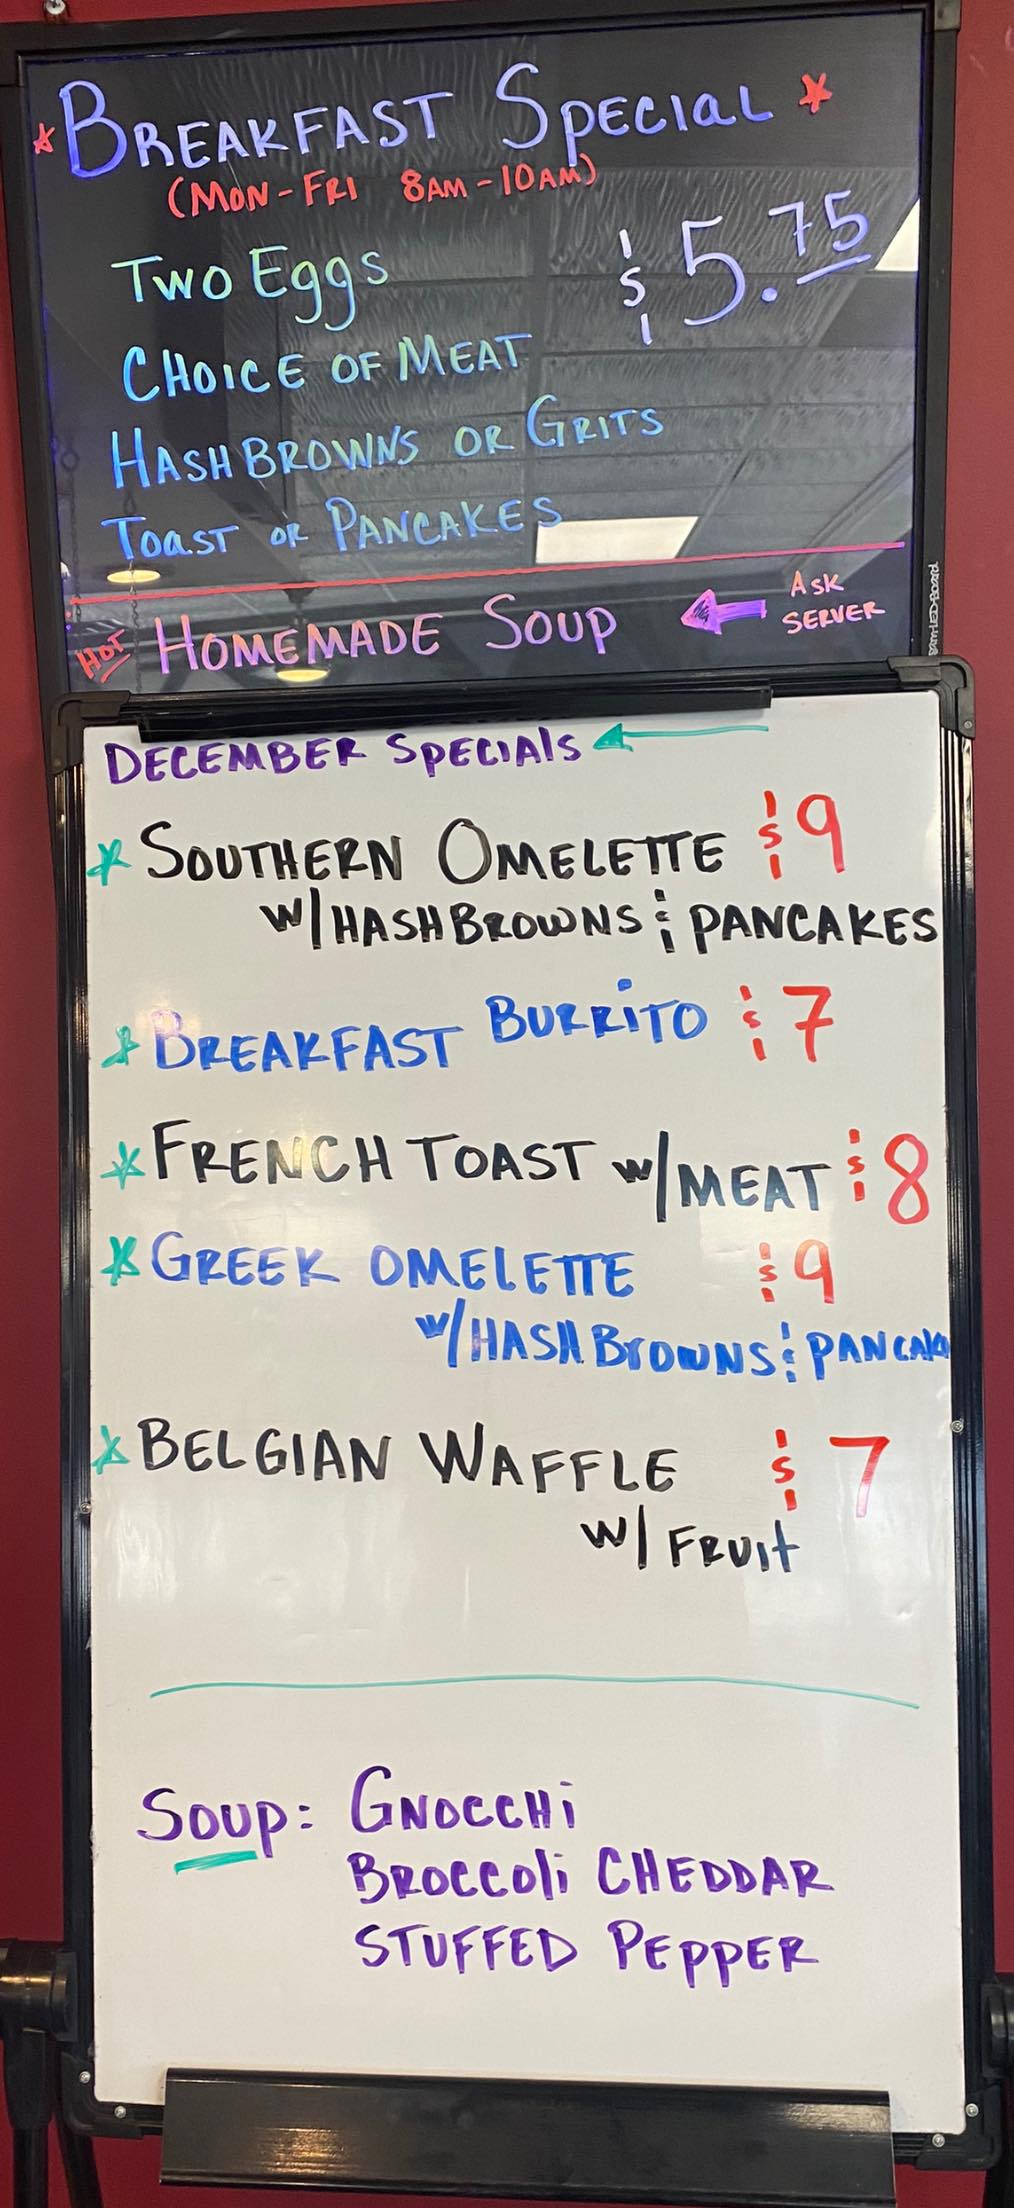 * BREAKFAST SPECIAL *
(MON-FRI 8AM-10AM)
TWO EGGS $5.75
CHOICE OF MEAT
HASHBROWNS OR GRITS
TOAST OR PANCAKES
HOT HOMEMADE SOUP ← ASK SERVER
DECEMBER SPECIALS ←
* SOUTHERN OMELETTE $9
W/HASHBROWNS & PANCAKES
* BREAKFAST BURRITO $7
* FRENCH TOAST W/MEAT $8
* GREEK OMELETTE $9
W/HASHBROWNS & PANCAKE
* BELGIAN WAFFLE $7
W/ FRUIT
SOUP: GNOCCHI
BROCCOLI CHEDDAR
STUFFED PEPPER